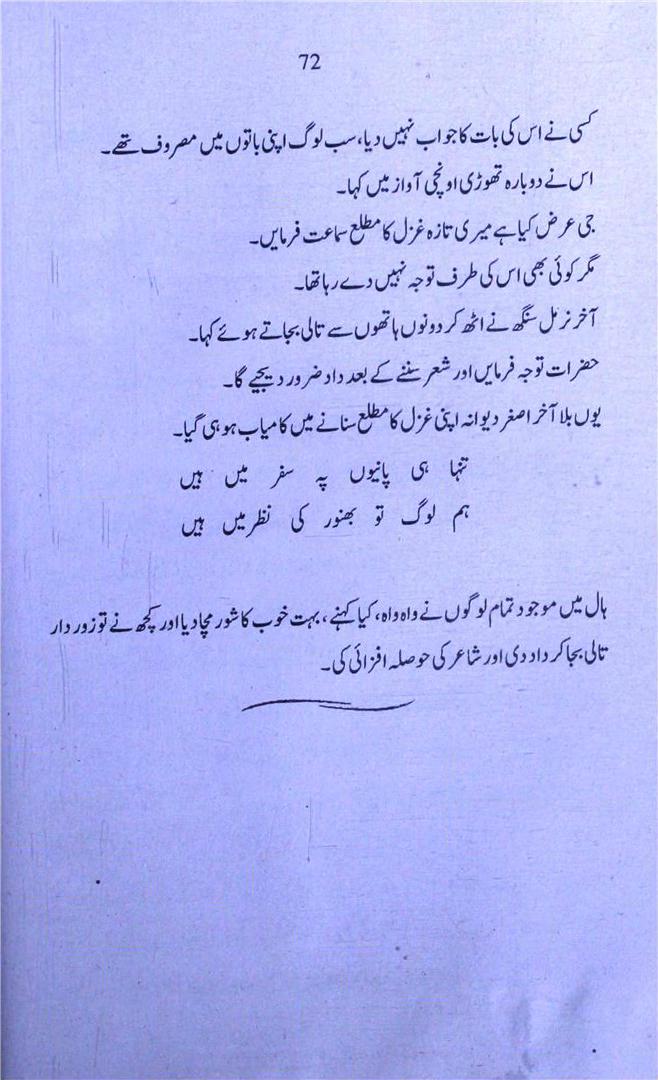 72
کسی نے اس کی بات کا جواب نہیں دیا، سب لوگ اپنی باتوں میں مصروف تھے۔
اس نے دوبارہ تھوڑی اونچی آواز میں کہا۔
جی عرض کیا ہے میری تازہ غزل کا مطلع سماعت فرمائیں۔
مگر کوئی بھی اس کی طرف توجہ نہیں دے رہا تھا۔
آخر نرمل سنگھ نے اٹھ کر دونوں ہاتھوں سے تالی بجاتے ہوئے کہا۔
حضرات توجہ فرمائیں اور شعر سننے کے بعد داد ضرور دیجیے گا۔
یوں بلا آخر اصغر دیوانہ اپنی غزل کا مطلع سنانے میں کامیاب ہو ہی گیا۔
تنہا ہی پانیوں پہ سفر میں ہیں
ہم لوگ تو بھنور کی نظر میں ہیں
ہال میں موجود تمام لوگوں نے واہ واہ، کیا کہنے، بہت خوب کا شور مچا دیا اور کچھ نے تو زور دار
تالی بجا کر داد دی اور شاعر کی حوصلہ افزائی کی۔